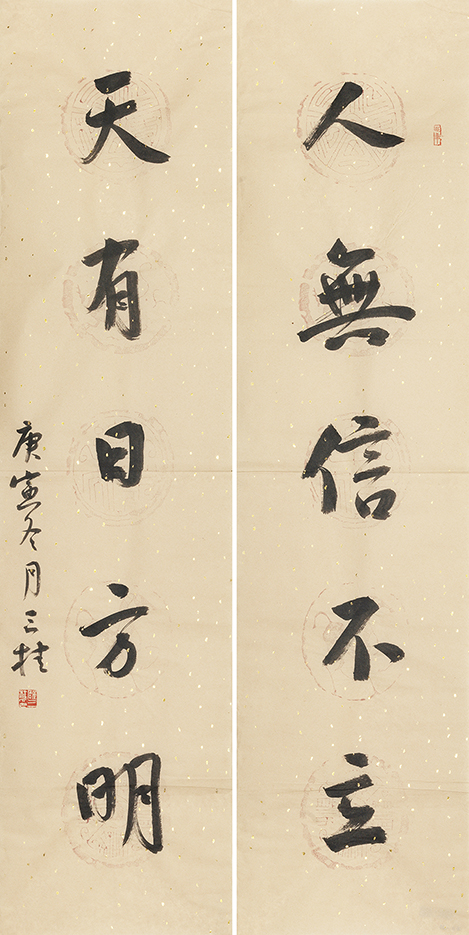 人無信不立
天有日方明
庚寅冬月三桂